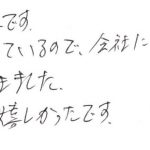 です。
ているので、会社に
ました。
嬉しかったです。